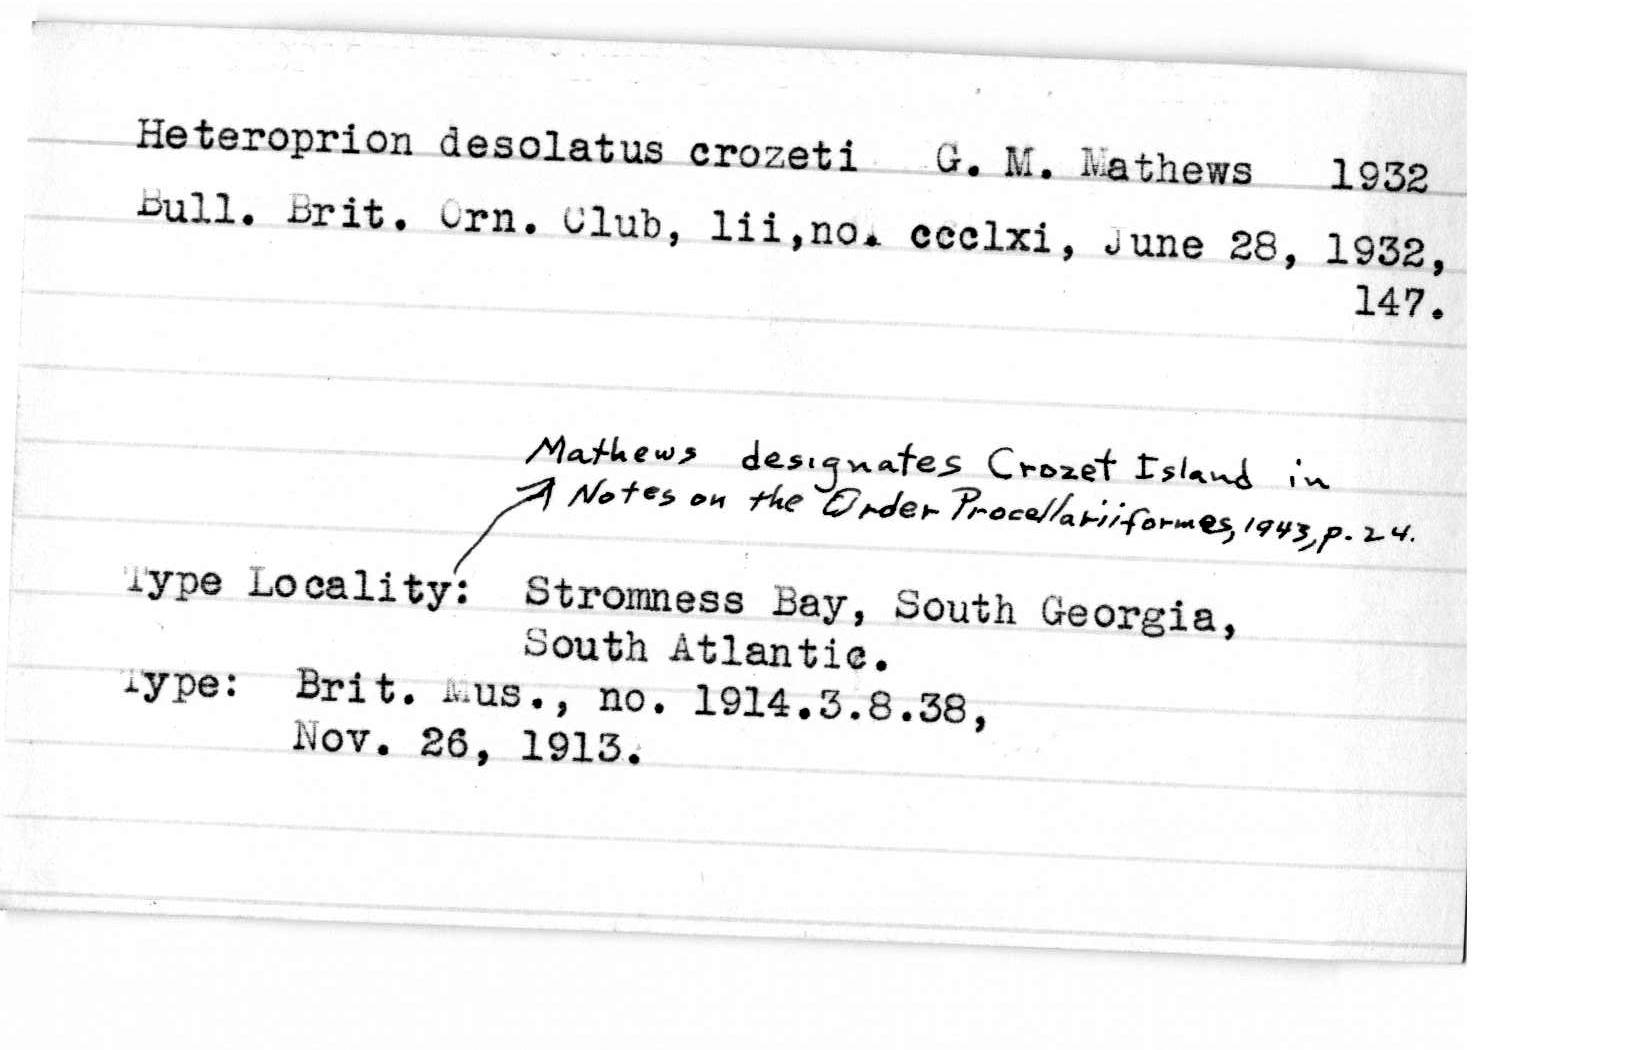 Heteroprion desolatus crozeti G. M. Mathews 1932
Bull. Brit. Orn. Club, lii,no. ccclxi, June 28, 1932,
147.
Mathews designates Crozet Island in
Notes on the Order Procellariiformes, 1943, p. 24.
Type Locality: Stromness Bay, South Georgia,
South Atlantic.
Type: Brit. Mus., no. 1914.3.8.38,
Nov. 26, 1913.